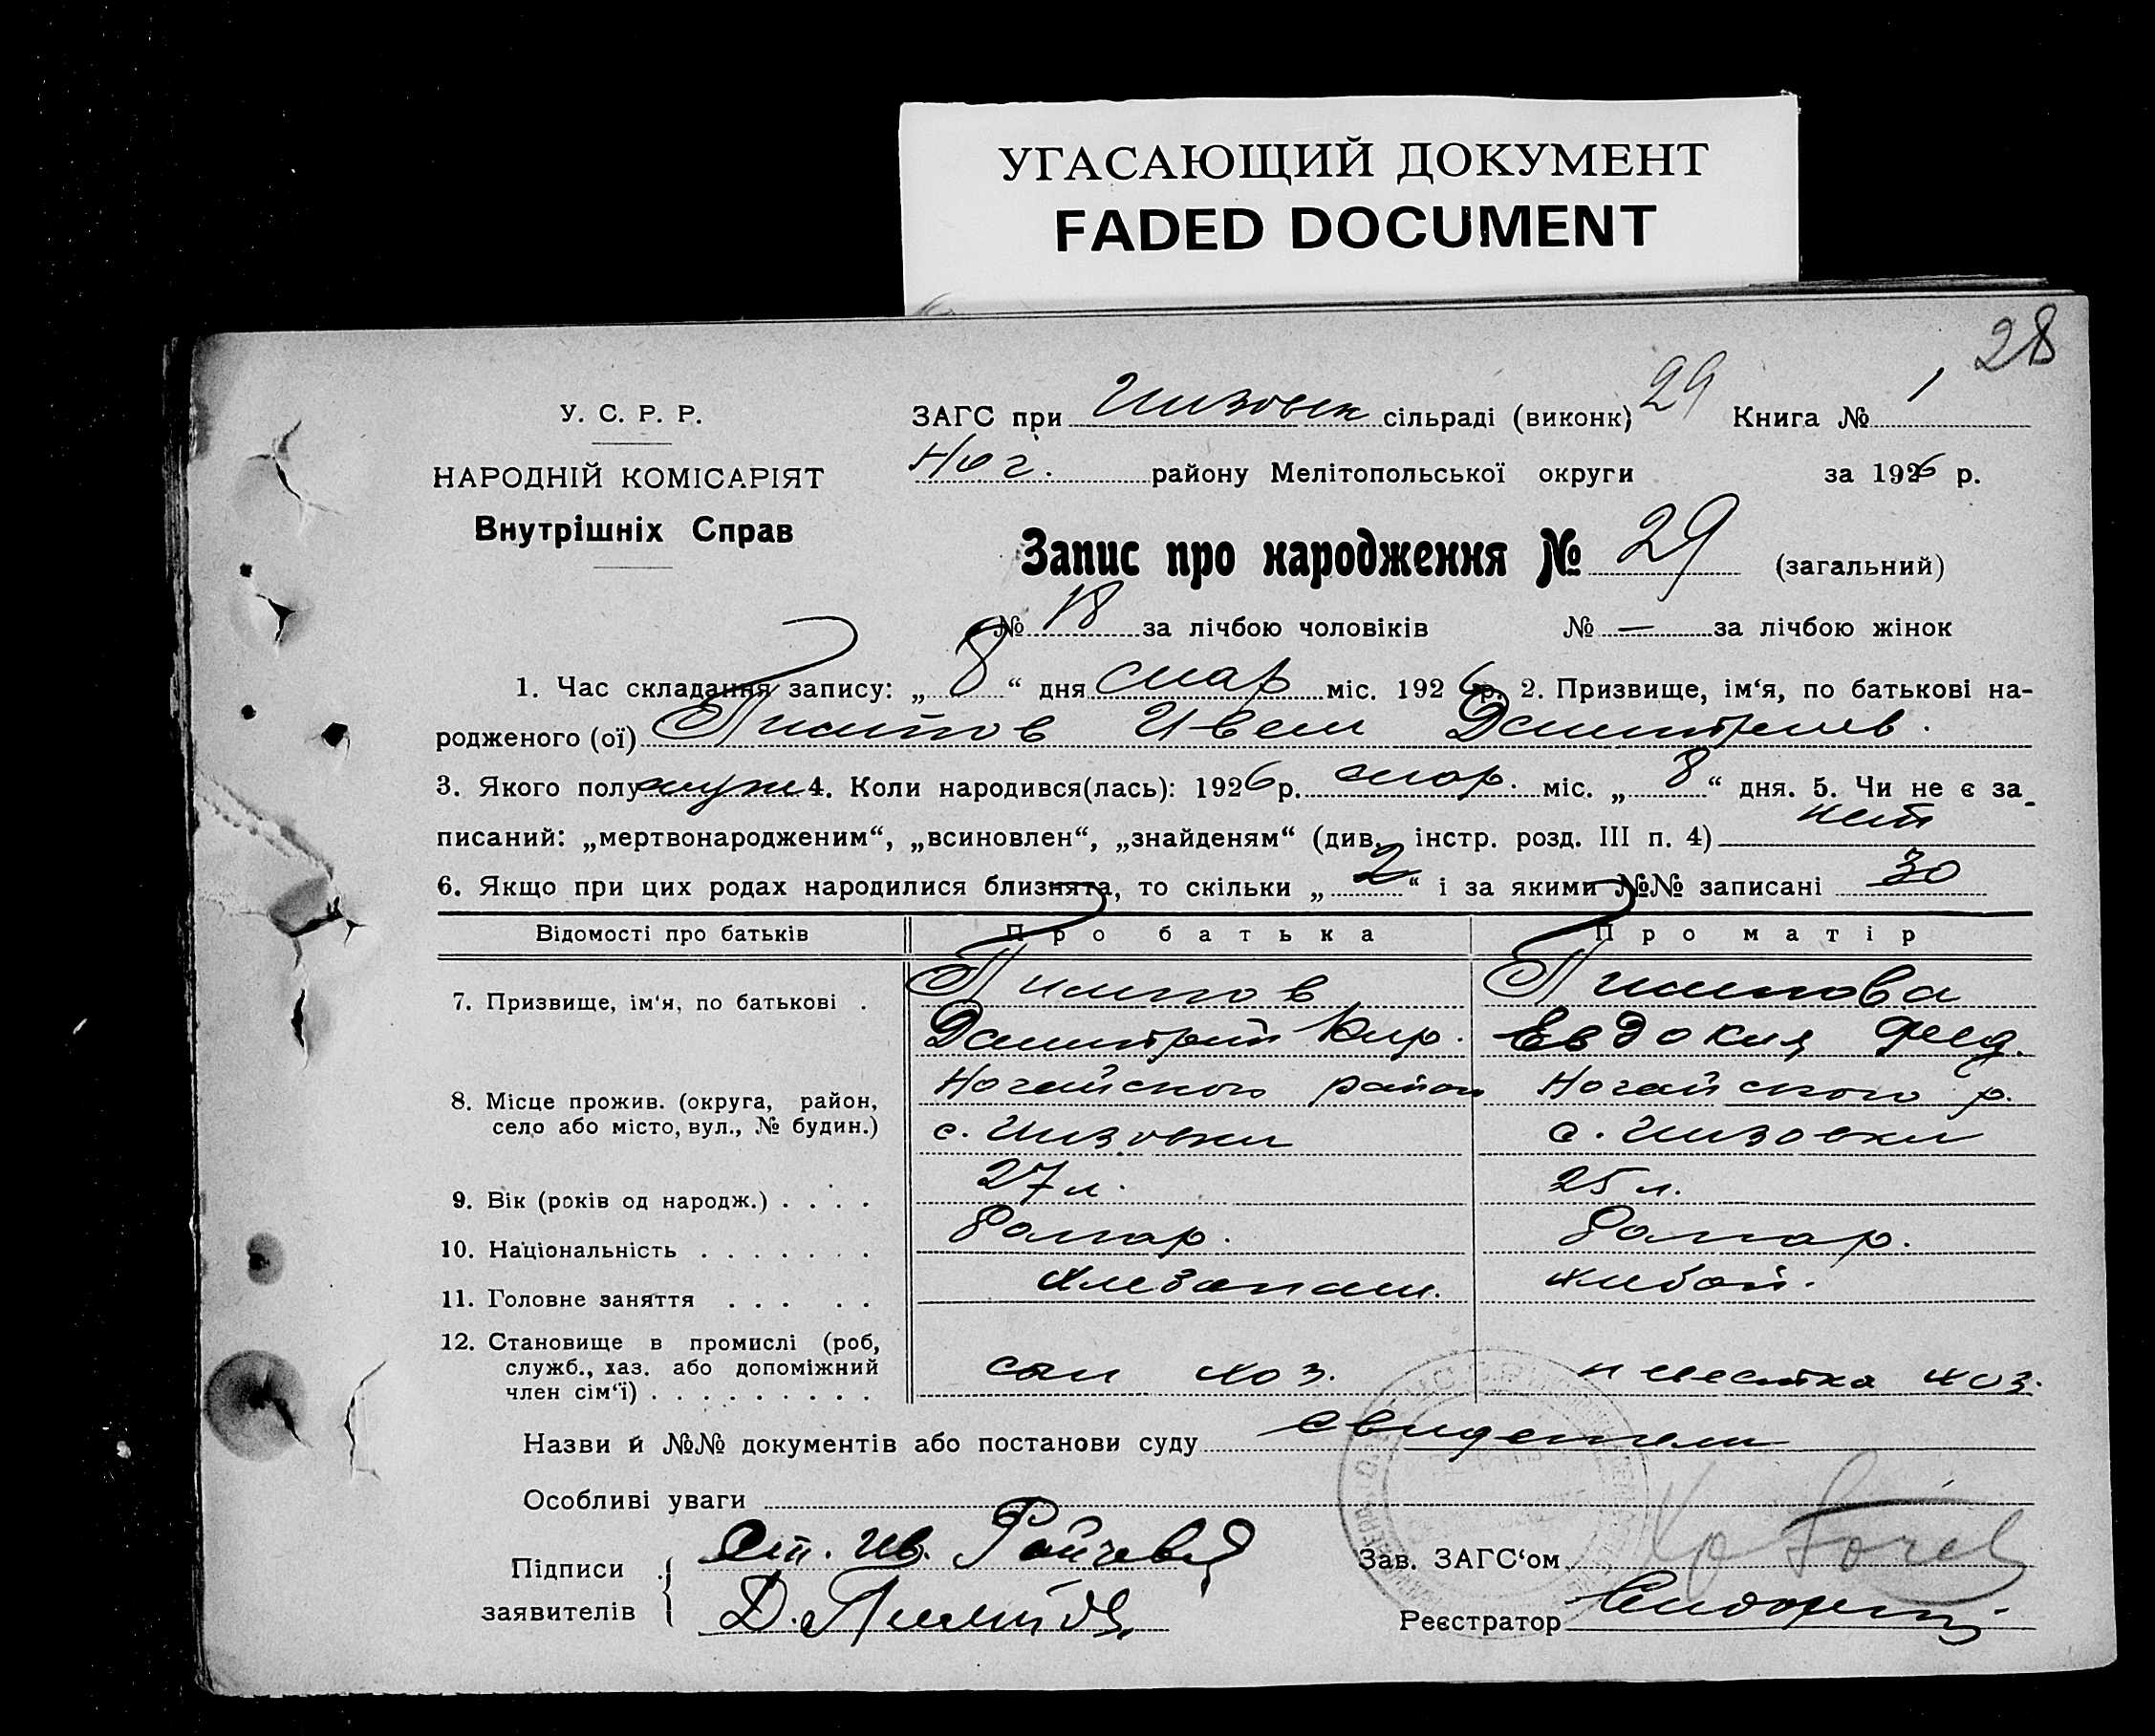 УГАСАЮЩИЙ ДОКУМЕНТ
FADED DOCUMENT
28
У. С. Р. Р.
НАРОДНІЙ КОМІСАРІЯТ
Внутрішніх Справ
ЗАГС при сільраді (виконк) 29 Книга № 1
Ног. району Мелітопольської округи за 1926 р.
Запис про народження № 29 (загальний)
№ 18 за лічбою чоловіків № — за лічбою жінок
1. Час складання запису: „ 8 “ дня мар міс. 1926 р. 2. Призвище, ім‘я, по батькові на-
родженого (ої)
3. Якого полу муж 4. Коли народився(лась): 1926 р. мар. міс. „ 8 “ дня. 5. Чи не є за-
писаний: „мертвонародженим“, „всиновлен“, „знайденям“ (див. інстр. розд. III п. 4) нет
6. Якщо при цих родах народилися близнята, то скільки „ 2 “ і за якими №№ записані 30
Відомості про батьків Про батька Про матір
7. Призвище, ім‘я, по батькові .
Дмитрий Кир. Евдокия Фед.
8. Місце прожив. (округа, район, село або місто, вул., № будин.) Ногайского район Ногайского р.
с. с.
9. Вік (років од народж.) . . . . 27 л. 25 л.
10. Національність . . . . . . . болгар. болгар.
11. Головне заняття . . . . . хлебопаш.
12. Становище в промислі (роб, служб., хаз. або допоміжний член сім‘ї) . . . . . . . . . сам хоз. невестка хоз.
Назви й №№ документів або постанови суду свидетели
Особливі уваги
Підписи заявителів Ив.
Д.
Зав. ЗАГС‘ом
Реєстратор